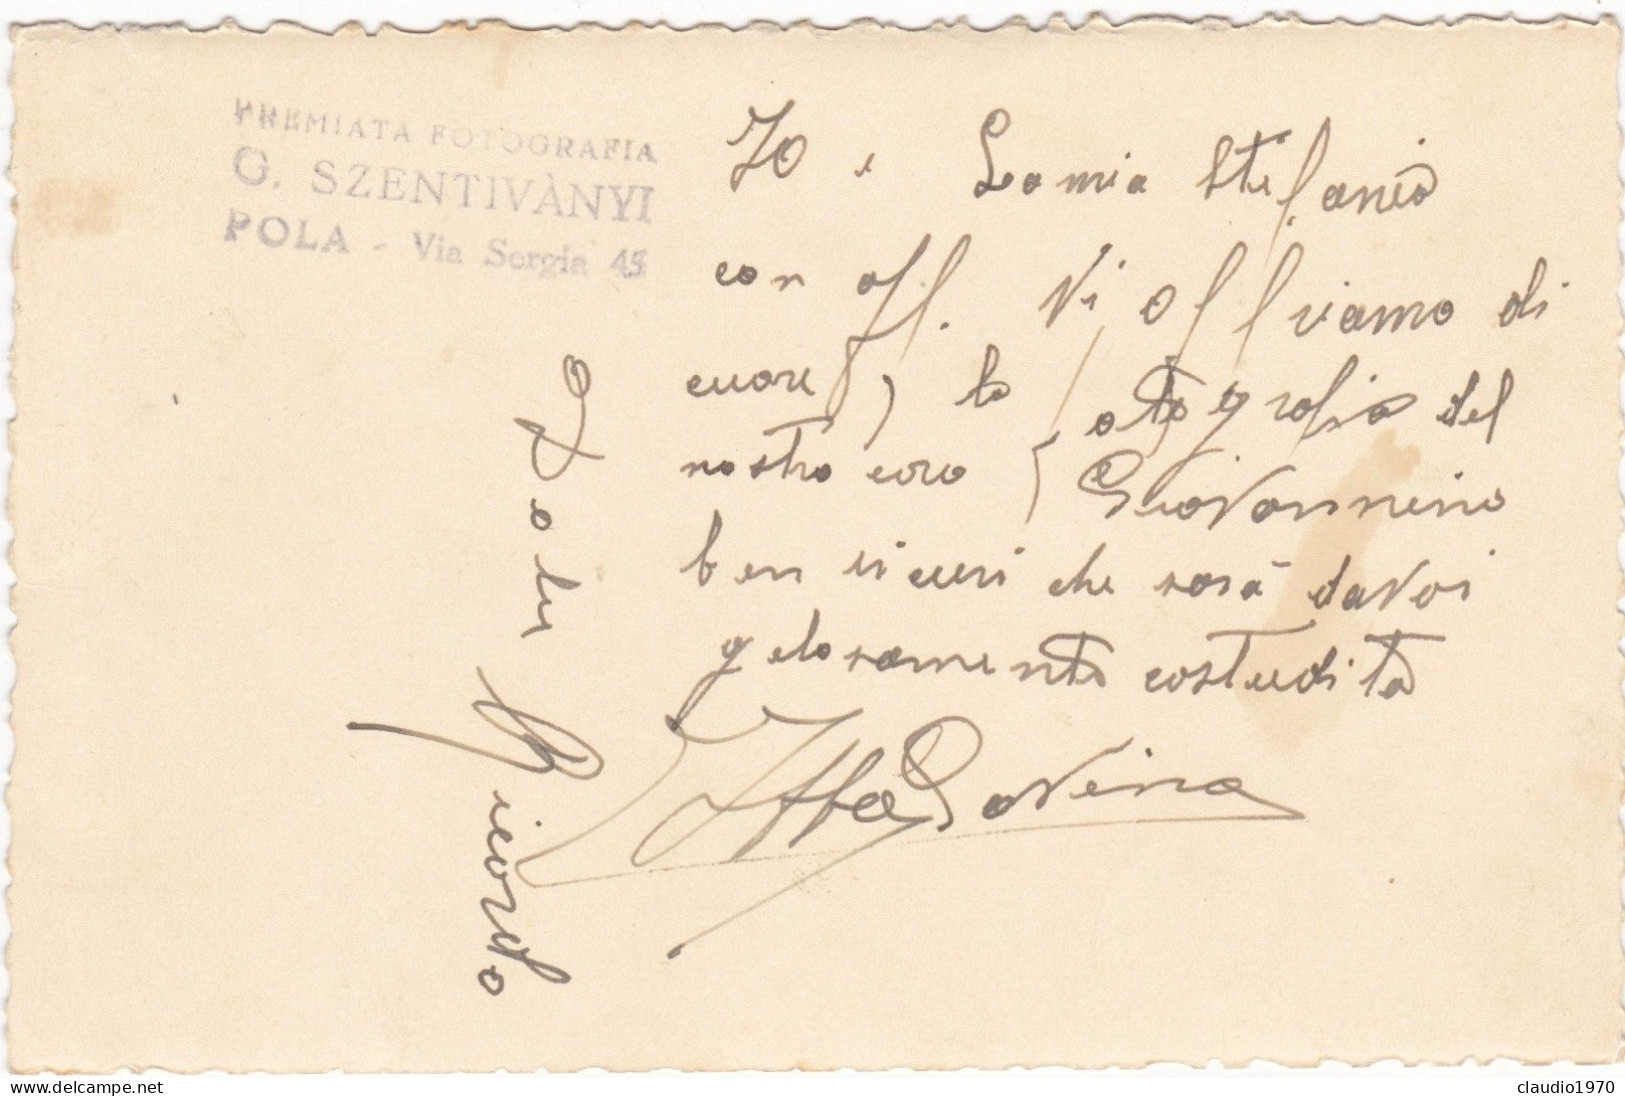 PREMIATA FOTOGRAFIA
G. SZENTIVÀNYI
POLA - Via Sergia 45
Io e la mia Stefania
con aff. Vi offriamo di
cuore, la fotografia del
nostro caro Giovannino
ben sicuri che sarà da Voi
gelosamente costudita
Savina
Dolce Ricordo
delcampe.net
claudio1970